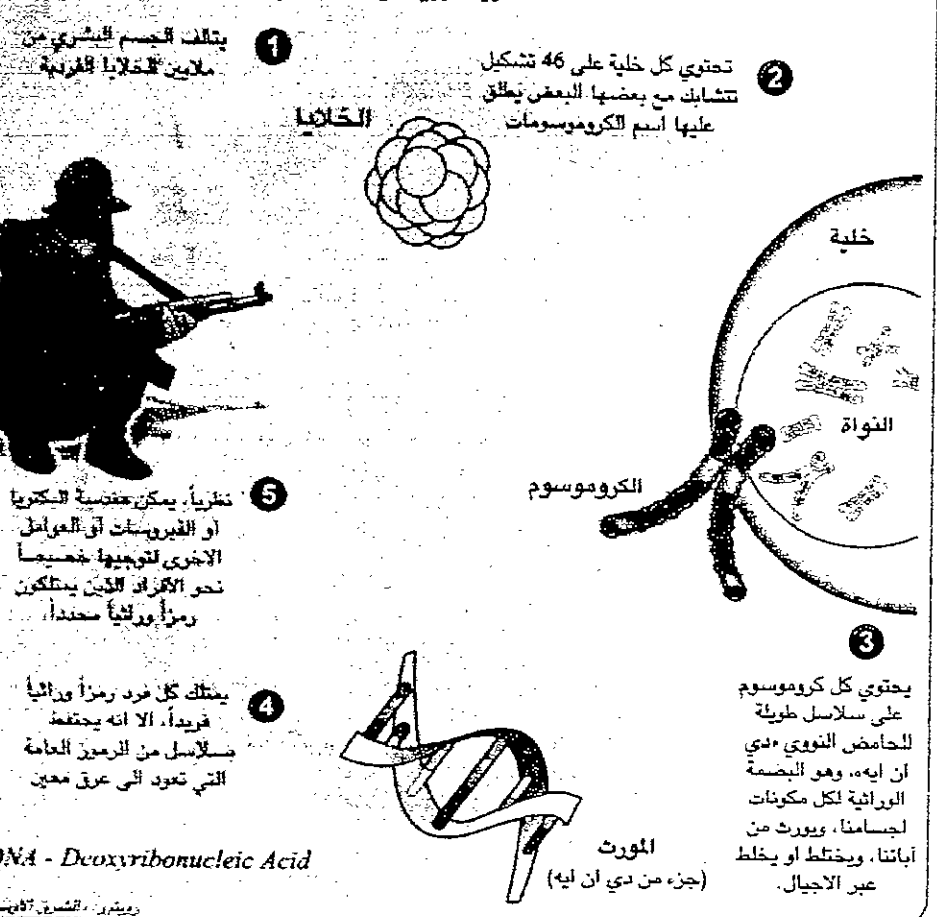 1
يتألف الجسم البشري من
ملايين الخلايا الفردية
2
تحتوي كل خلية على 46 تشكيل
تتشابك مع بعضها البعض يطلق
عليها اسم الكروموسومات
الخلايا
خلية
النواة
الكروموسوم
3
يحتوي كل كروموسوم
على سلاسل طويلة
للحامض النووي «دي
ان ايه»، وهو البصمة
الوراثية لكل مكونات
اجسامنا، ويورث من
آبائنا، ويختلط او يخلط
عبر الاجيال.
4
يمتلك كل فرد رمزاً وراثياً
فريداً، الا انه يحتفظ
بسلاسل من الرموز العامة
التي تعود الى عرق معين
المورث
(جزء من دي ان ايه)
5
نظرياً، يمكن هندسة البكتريا
أو الفيروسات أو العوامل
الاخرى لتوجيهها خصيصاً
نحو الأفراد الذين يمتلكون
رمزاً وراثياً محدداً.
DNA - Deoxyribonucleic Acid